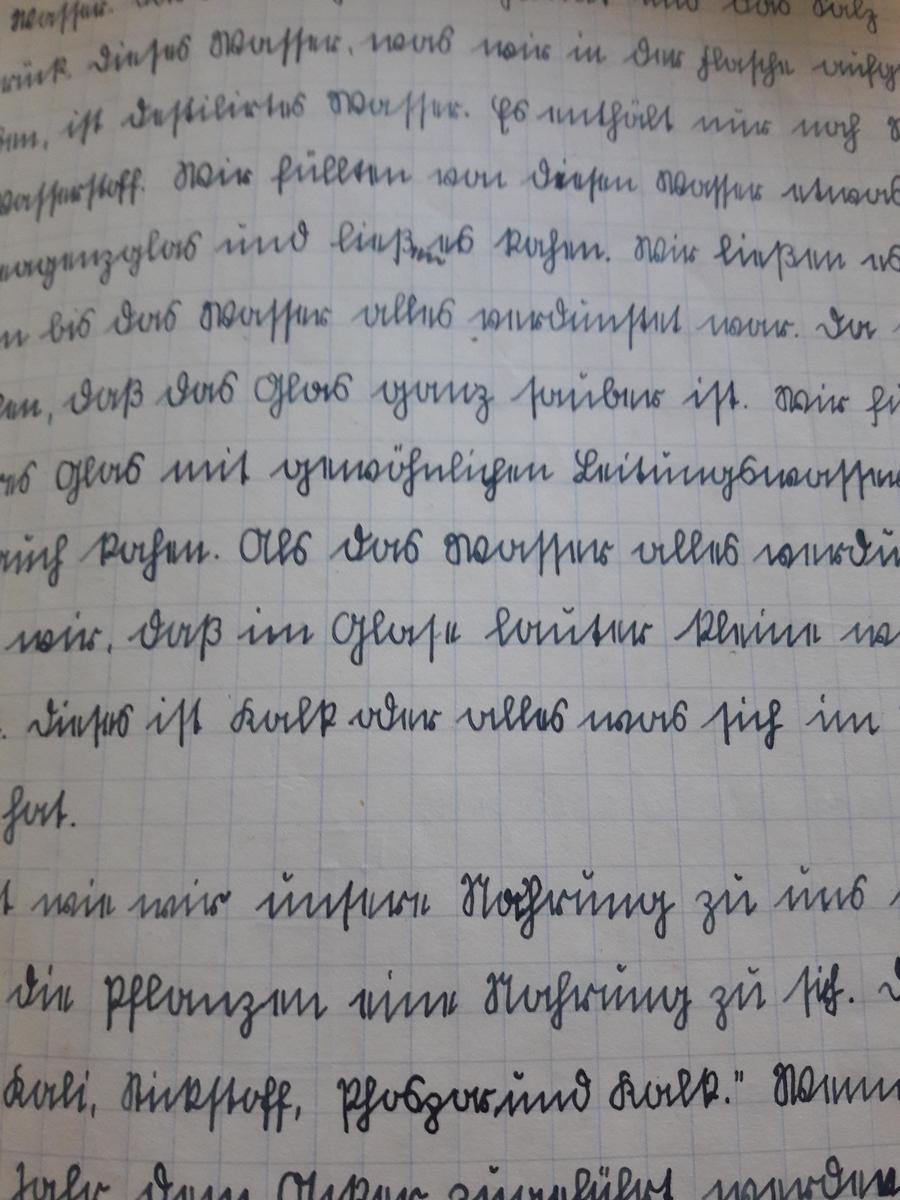 Wasser. und das Salz
rück. Dieses Wasser, was wir in der Flasche aufge
en, ist destilirtes Wasser. Es enthält nur noch
Wasserstoff. Wir füllten von diesen Wasser etwas
eagenzglas und ließen es kochen. Wir ließen es
n bis das Wasser alles verdünstet war. Da
en, daß das Glas ganz sauber ist. Wir fü
es Glas mit gewöhnlichen Leitungswasser
auch kochen. Als das Wasser alles verdü
wir, daß im Glase lauter kleine
. Dieses ist Kalk oder alles was sich im
hat.
t wie wir unsere Nahrung zu uns
die Pflanzen eine Nahrung zu sich. D
Kali, Stickstoff, Phoszor und Kalk." Wenn
Jahr dem Acker zugeführt werden